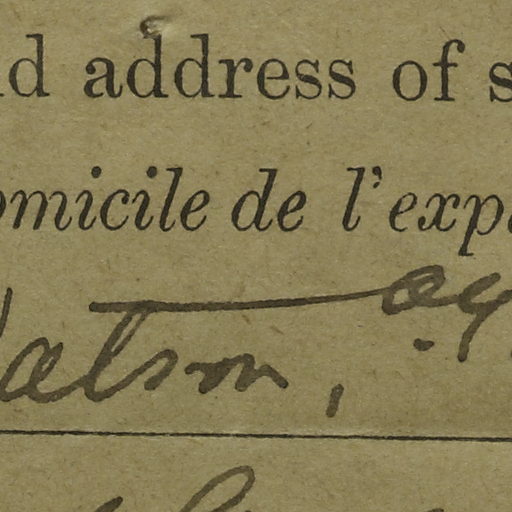 d address of s
omicile de l'exp
Watson,